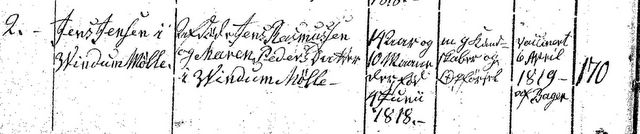 2. - Jens Jensen i
Vindum Mølle.
Jens Rasmussen
og Maren Peders Datter
i Vindum Mølle
14 Aar og
10 Maaner
4 Junii
1818.-
m g Kund-
skaber og
Opførsel
vaccineret
6 April
1819-
af Bager
170